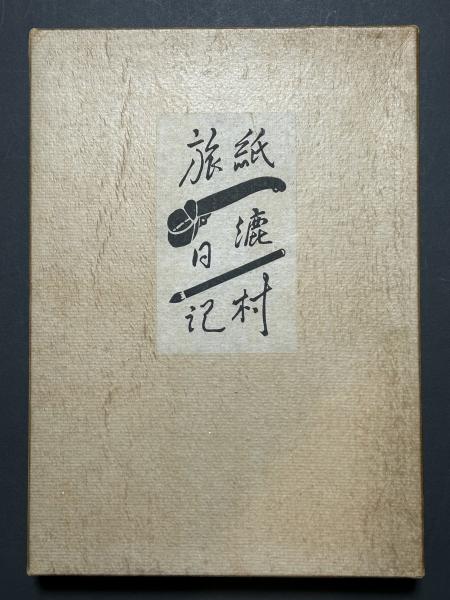 紙漉村
旅日記